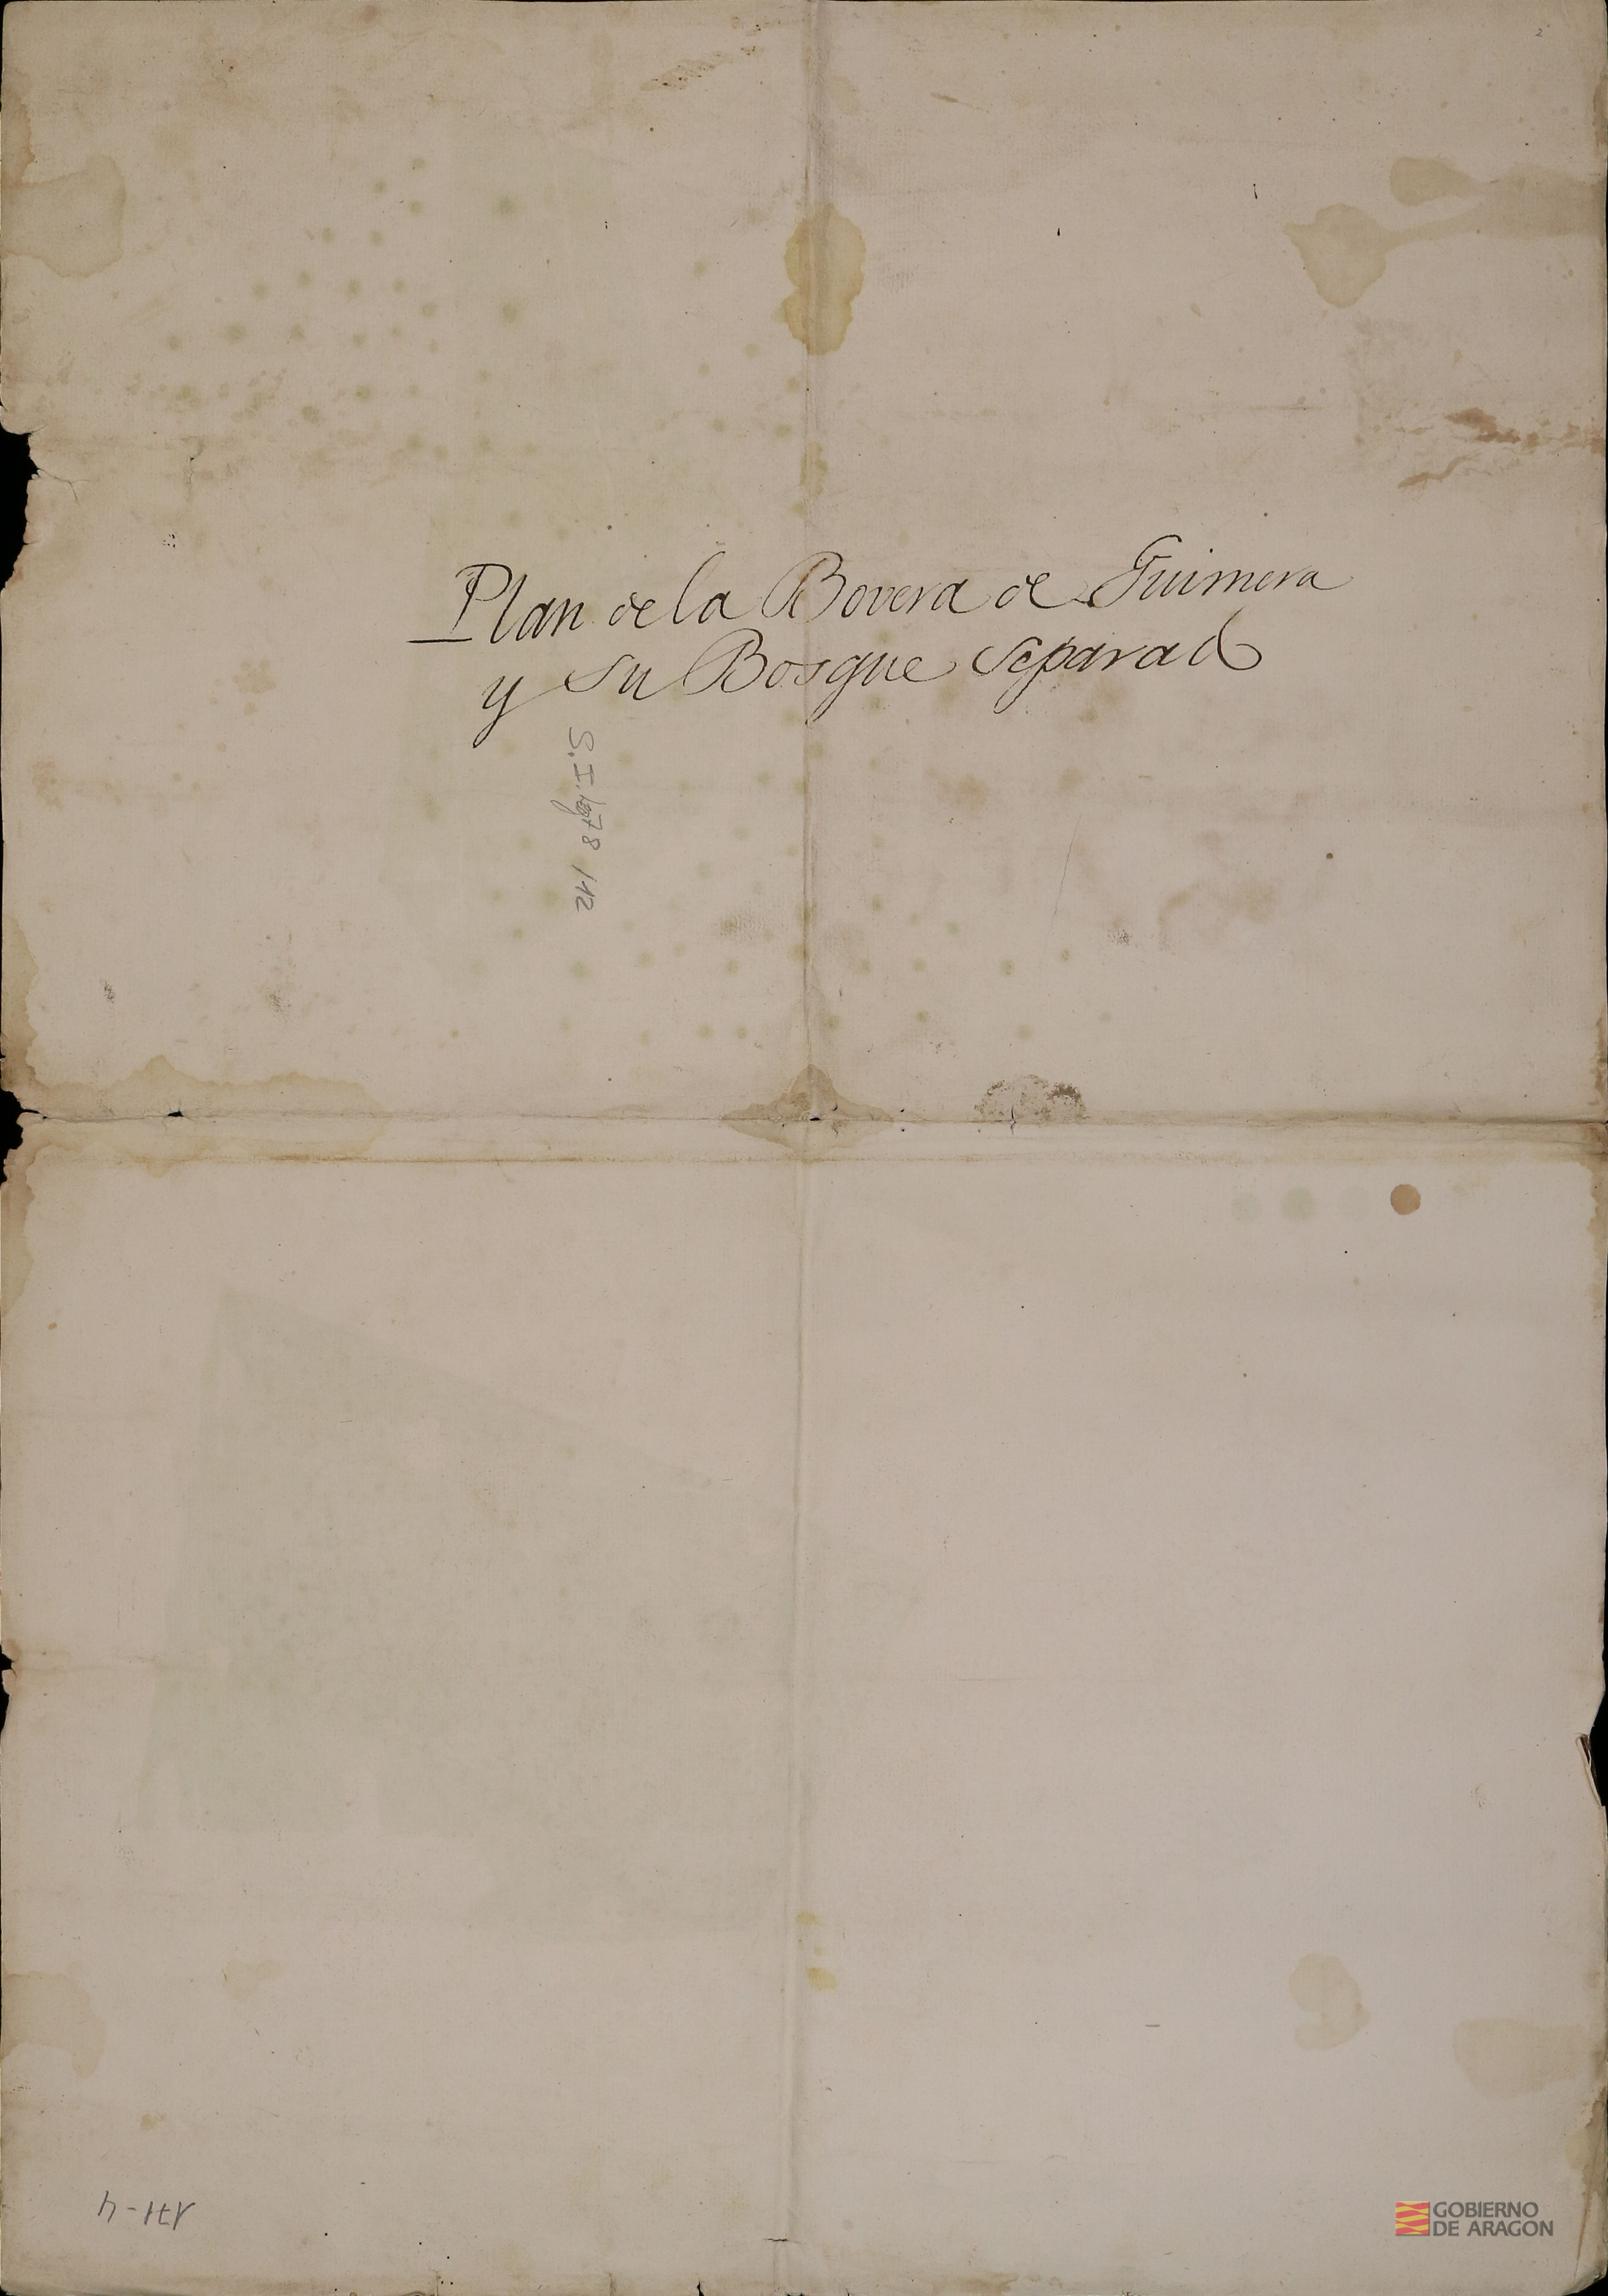 Plan de la Bovera de Guimera
y su Bosque separado
S.I. leg 78 142
171-4
GOBIERNO
DE ARAGON